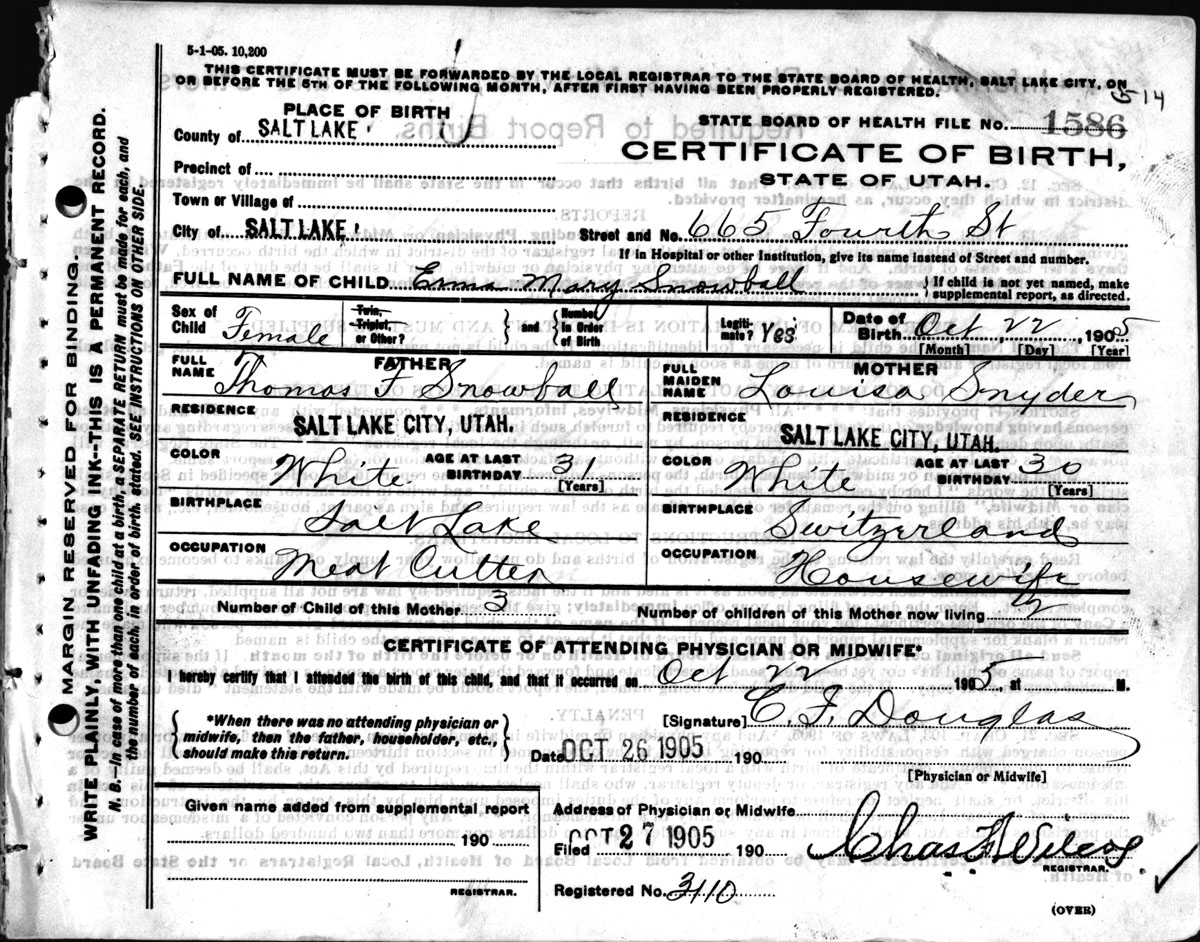 5-1-05. 10,200
THIS CERTIFICATE MUST BE FORWARDED BY THE LOCAL REGISTRAR TO THE STATE BOARD OF HEALTH, SALT LAKE CITY, ON
OR BEFORE THE 5TH OF THE FOLLOWING MONTH, AFTER FIRST HAVING BEEN PROPERLY REGISTERED.
14
PLACE OF BIRTH
County of SALT LAKE
Precinct of
Town or Village of
City of SALT LAKE
STATE BOARD OF HEALTH FILE NO. 1586
CERTIFICATE OF BIRTH,
STATE OF UTAH.
Street and No. 665 Fourth St
If in Hospital or other Institution, give its name instead of Street and number.
FULL NAME OF CHILD Erma Mary Snowball
If child is not yet named, make
supplemental report, as directed.
Sex of Child Female
Twin, Triplet, or Other?
and
Number in Order of Birth
Legiti-mate? Yes
Date of Birth Oct 22 1905
[Month] [Day] [Year]
FATHER
FULL NAME Thomas F Snowball
RESIDENCE
SALT LAKE CITY, UTAH.
COLOR White
AGE AT LAST BIRTHDAY 31
[Years]
BIRTHPLACE Salt Lake
OCCUPATION Meat Cutter
MOTHER
FULL MAIDEN NAME Louisa Snyder
RESIDENCE
SALT LAKE CITY, UTAH.
COLOR White
AGE AT LAST BIRTHDAY 30
[Years]
BIRTHPLACE Switzerland
OCCUPATION Housewife
Number of Child of this Mother 3
Number of children of this Mother now living 2
CERTIFICATE OF ATTENDING PHYSICIAN OR MIDWIFE*
I hereby certify that I attended the birth of this child, and that it occurred on Oct 22 1905, at M.
*When there was no attending physician or
midwife, then the father, householder, etc.,
should make this return.
[Signature] E. F. Douglas
Date OCT 26 1905 190
[Physician or Midwife]
Given name added from supplemental report
190
REGISTRAR.
Address of Physician or Midwife
Filed OCT 27 1905 190
Chas F Wilcox
REGISTRAR.
Registered No. 3110
(OVER)
MARGIN RESERVED FOR BINDING.
WRITE PLAINLY, WITH UNFADING INK--THIS IS A PERMANENT RECORD.
N. B.--In case of more than one child at a birth, a SEPARATE RETURN must be made for each, and
the number of each, in order of birth, stated. SEE INSTRUCTIONS ON OTHER SIDE.